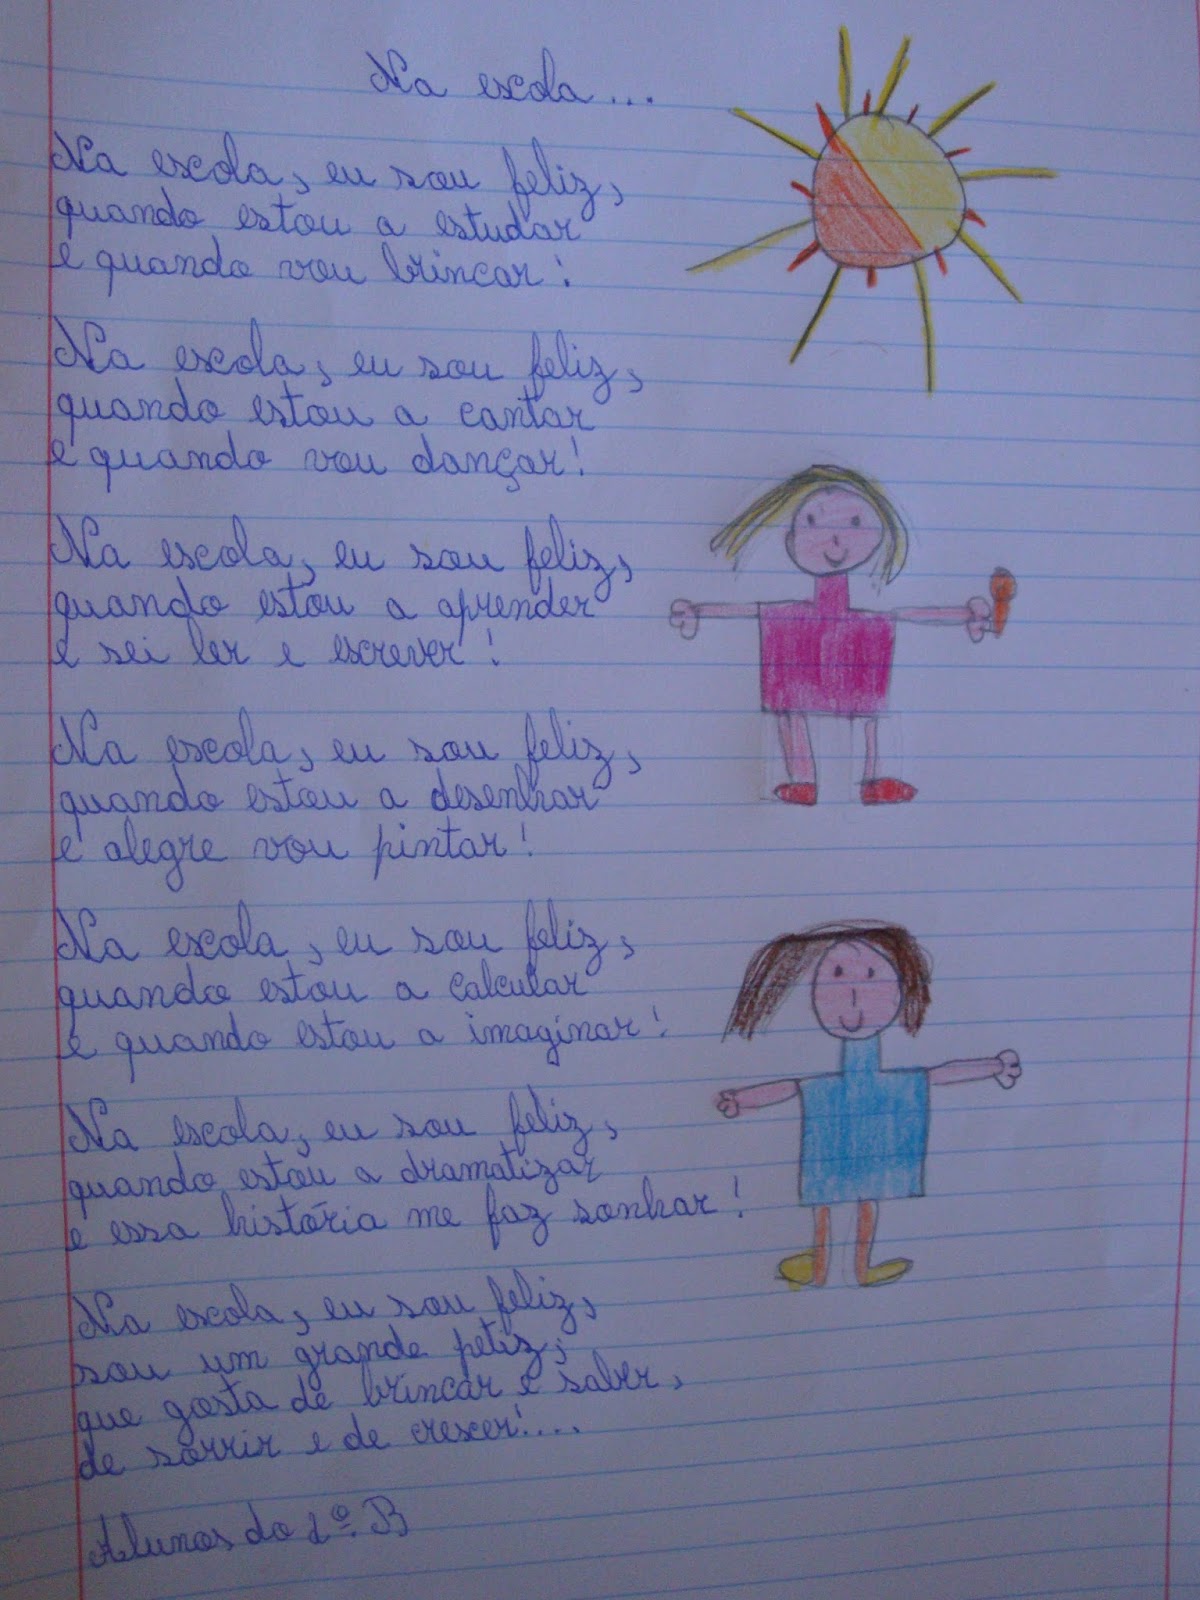 Na escola...
Na escola, eu sou feliz,
quando estou a estudar
e quando vou brincar!
Na escola, eu sou feliz,
quando estou a cantar
e quando vou dançar!
Na escola, eu sou feliz,
quando estou a aprender
e sei ler e escrever!
Na escola, eu sou feliz,
quando estou a desenhar
e alegre vou pintar!
Na escola, eu sou feliz,
quando estou a calcular
e quando estou a imaginar!
Na escola, eu sou feliz,
quando estou a dramatizar
e essa história me faz sonhar!
Na escola, eu sou feliz,
sou um grande petiz,
que gosta de brincar e saber,
de sorrir e de crescer!....
Alunos do 1º B